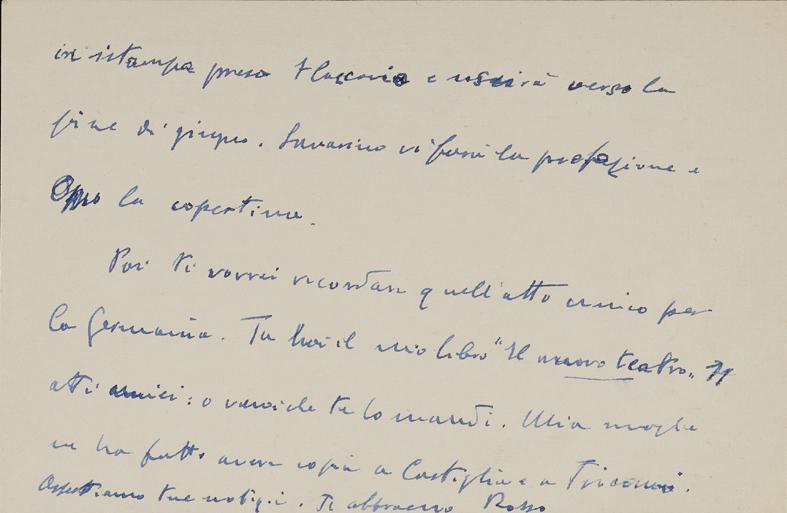 in istampa presso e uscirà verso la
fine di giugno. Savarino vi farà la prefazione e
Oppo la copertina.
Poi ti vorrei ricordare quell'atto unico per
la Germania. Tu hai il mio libro "Il nuovo teatro„
atti unici: o vuoi che te lo mandi. Mia moglie
ne ha fatto avere copia a Castiglia e a
Aspettiamo tue notizie. Ti abbraccio Rosso